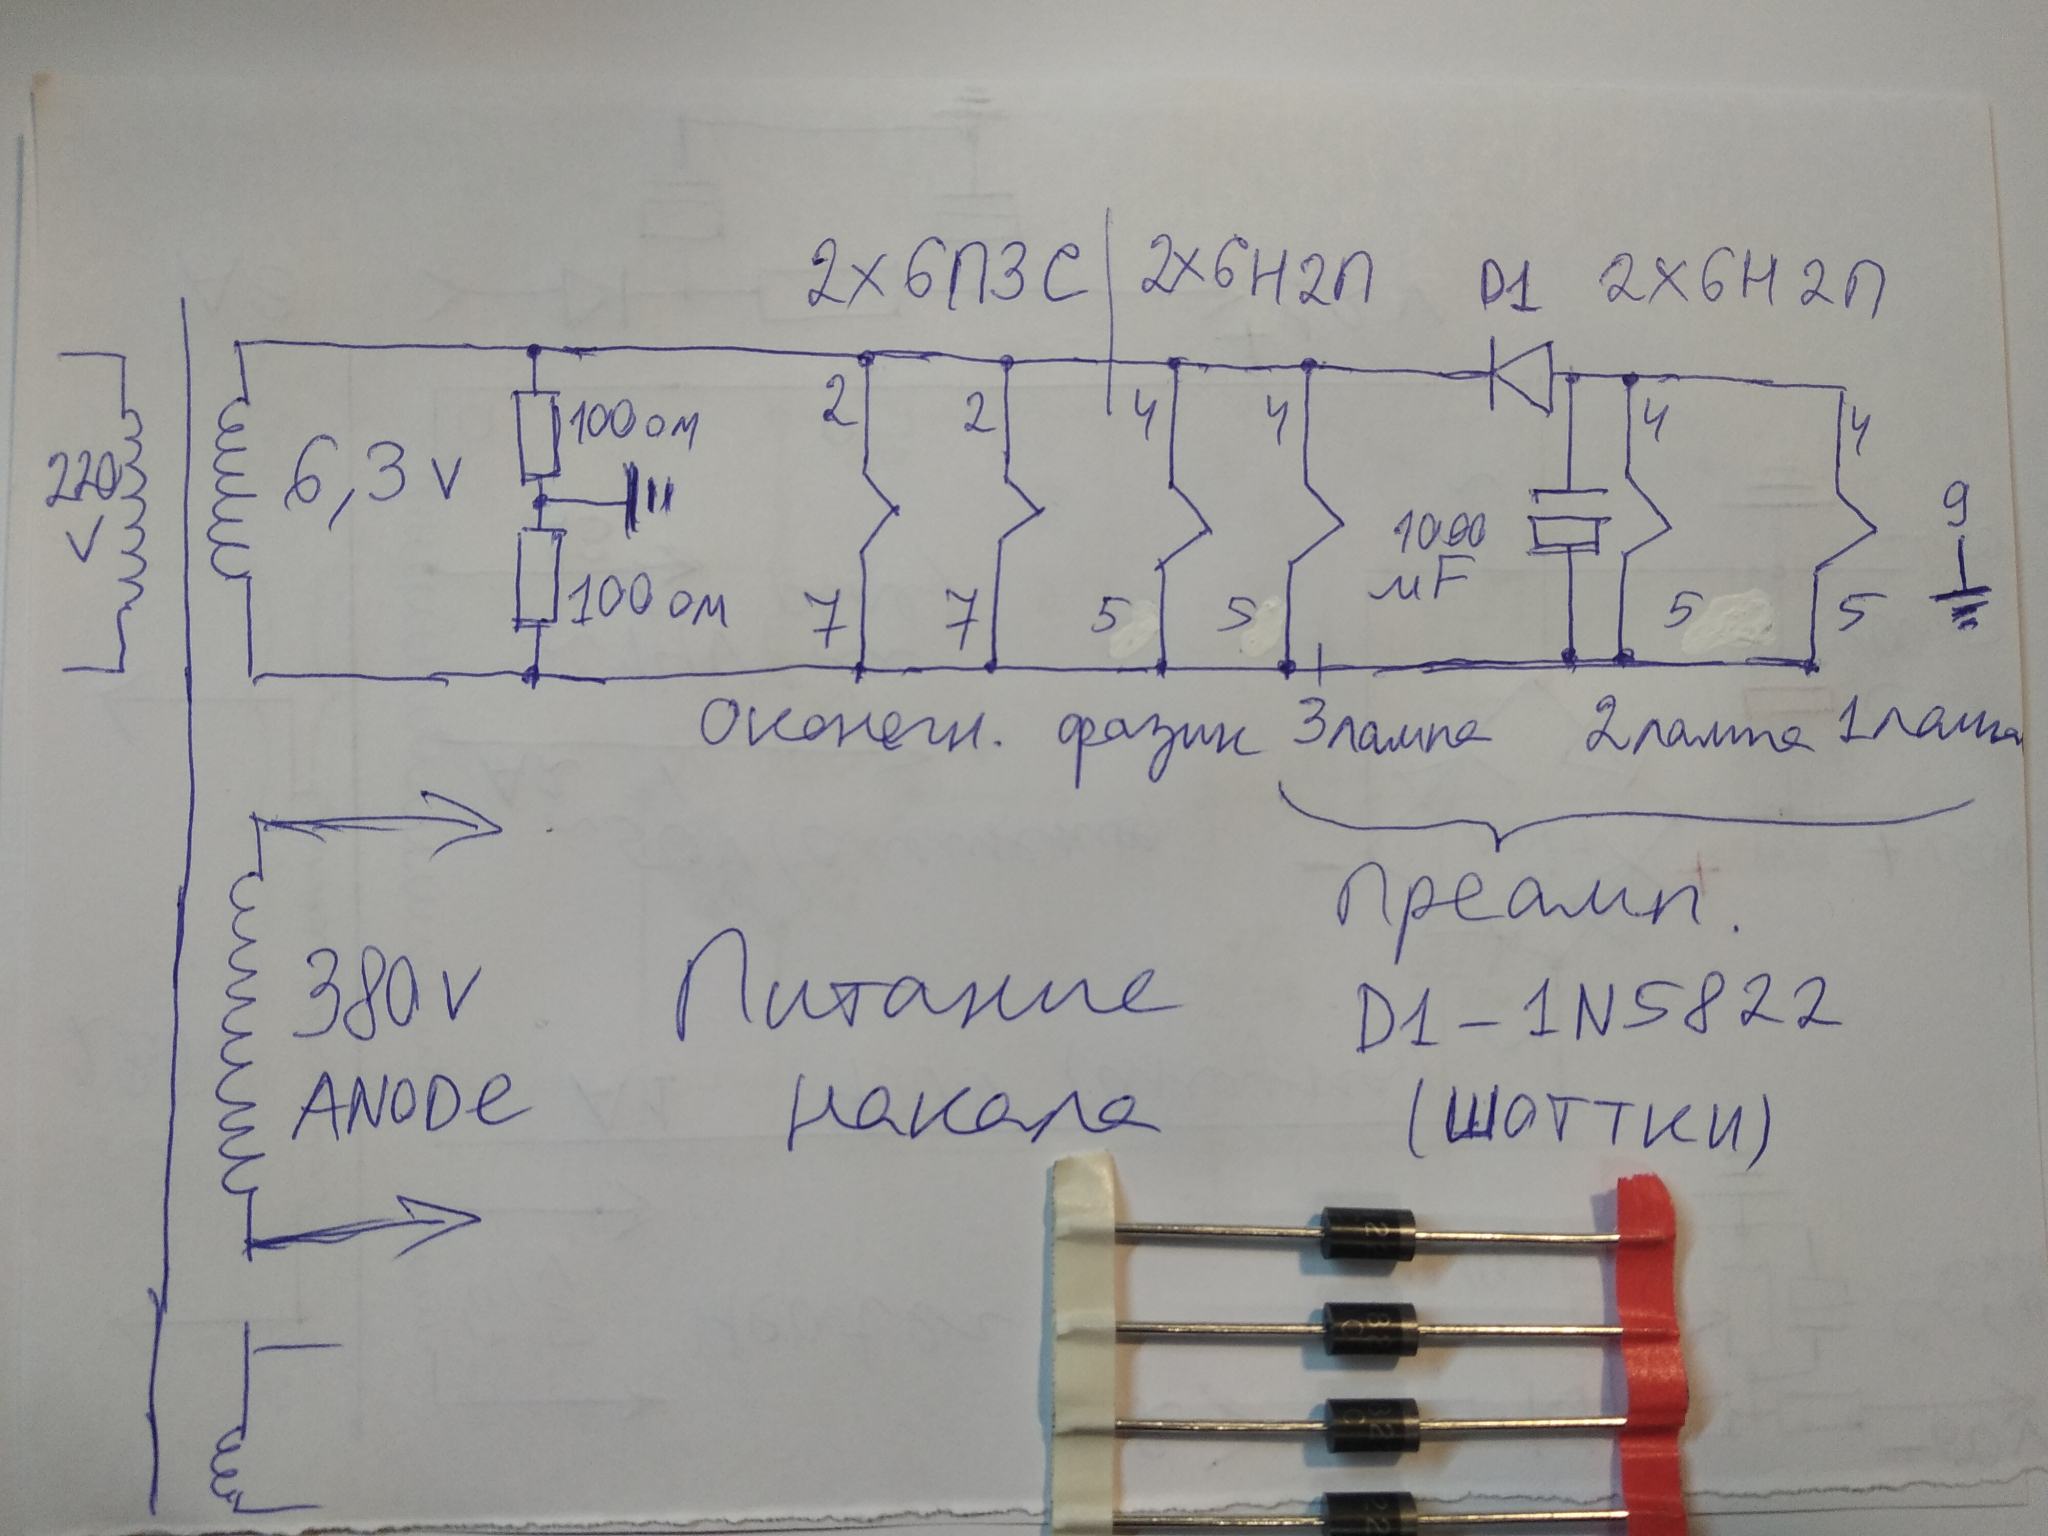 2х6П3С 2х6Н2П D1 2х6Н2П
2 2 4 4 4 4
100 ом
220 V
6,3 V
9
1000
μF
100 ом
7 7 5 5 5 5
Оконечн. фазик 3 лампа 2 лампа 1 лампа
Преамп.
380 V
ANODE
Питание
накала
D1 – 1N5822
(ШОТТКИ)